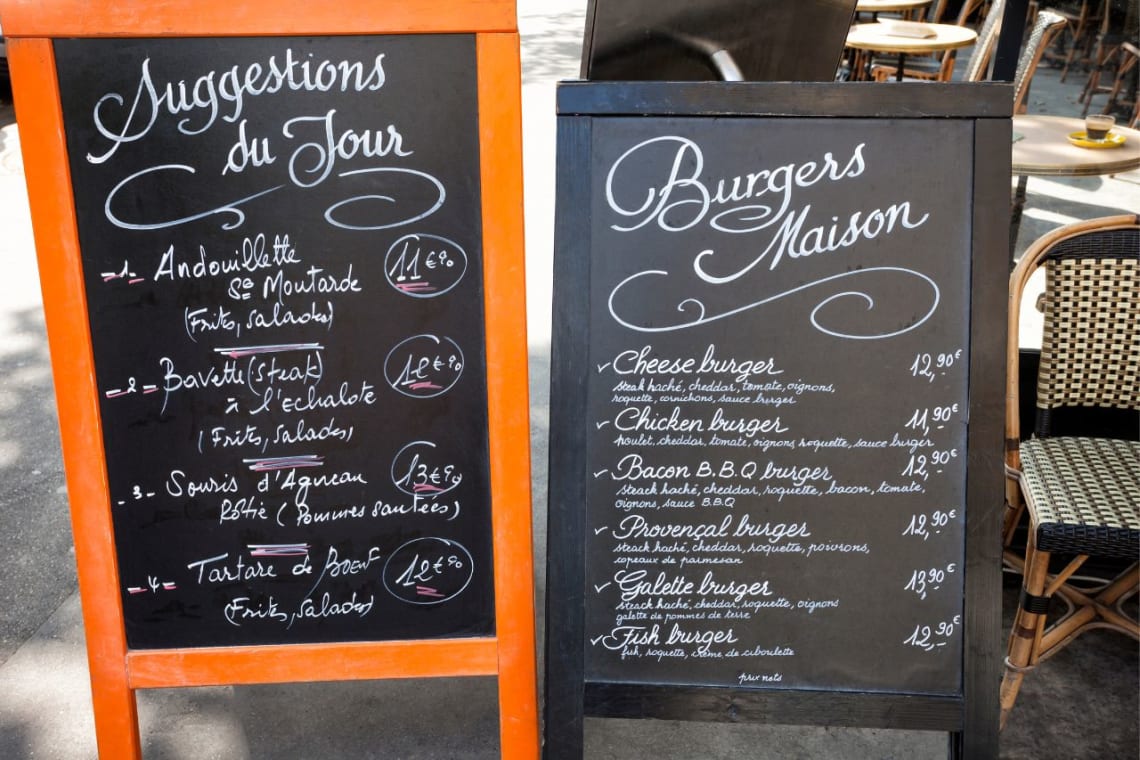 Suggestions
du Jour
-1- Andouillette 11€90
Sce Moutarde
(Frites, salades)
-2- Bavette (steak) 12€90
à l'Echalote
(Frites, salades)
-3- Souris d'Agneau 13€90
Rôtie (Pommes sautées)
-4- Tartare de Boeuf 12€90
(Frites, salades)
Burgers
Maison
✓ Cheese burger 12,90€
steak haché, cheddar, tomate, oignons,
roquette, cornichons, sauce burger
✓ Chicken burger 11,90€
poulet, cheddar, tomate, oignons roquette, sauce burger
✓ Bacon B.B.Q burger 12,90€
steack haché, cheddar, roquette, bacon, tomate,
oignons, sauce B.B.Q
✓ Provençal burger 12,90€
steack haché, cheddar, roquette, poivrons,
copeaux de parmesan
✓ Galette burger 13,90€
steack haché, cheddar, roquette, oignons
galette de pommes de terre
✓ Fish burger 12,90€
fish, roquette, crème de ciboulette
prix nets